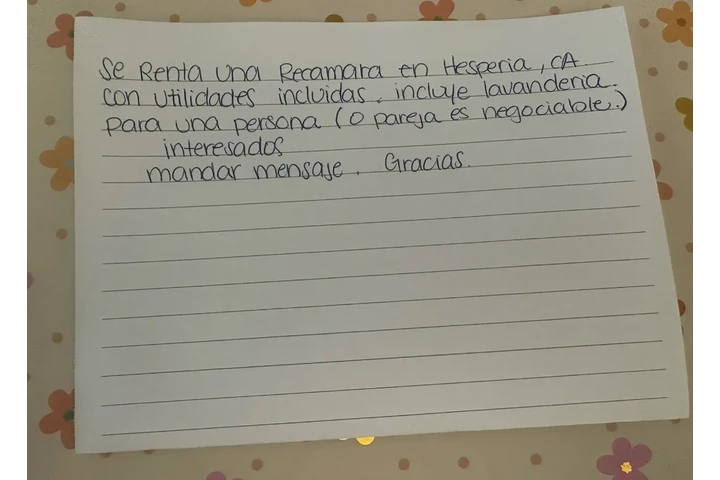 Se Renta una Recamara en Hesperia, CA.
con utilidades incluidas. incluye lavanderia.
para una persona (o pareja es negociable.)
interesados
mandar mensaje. Gracias.